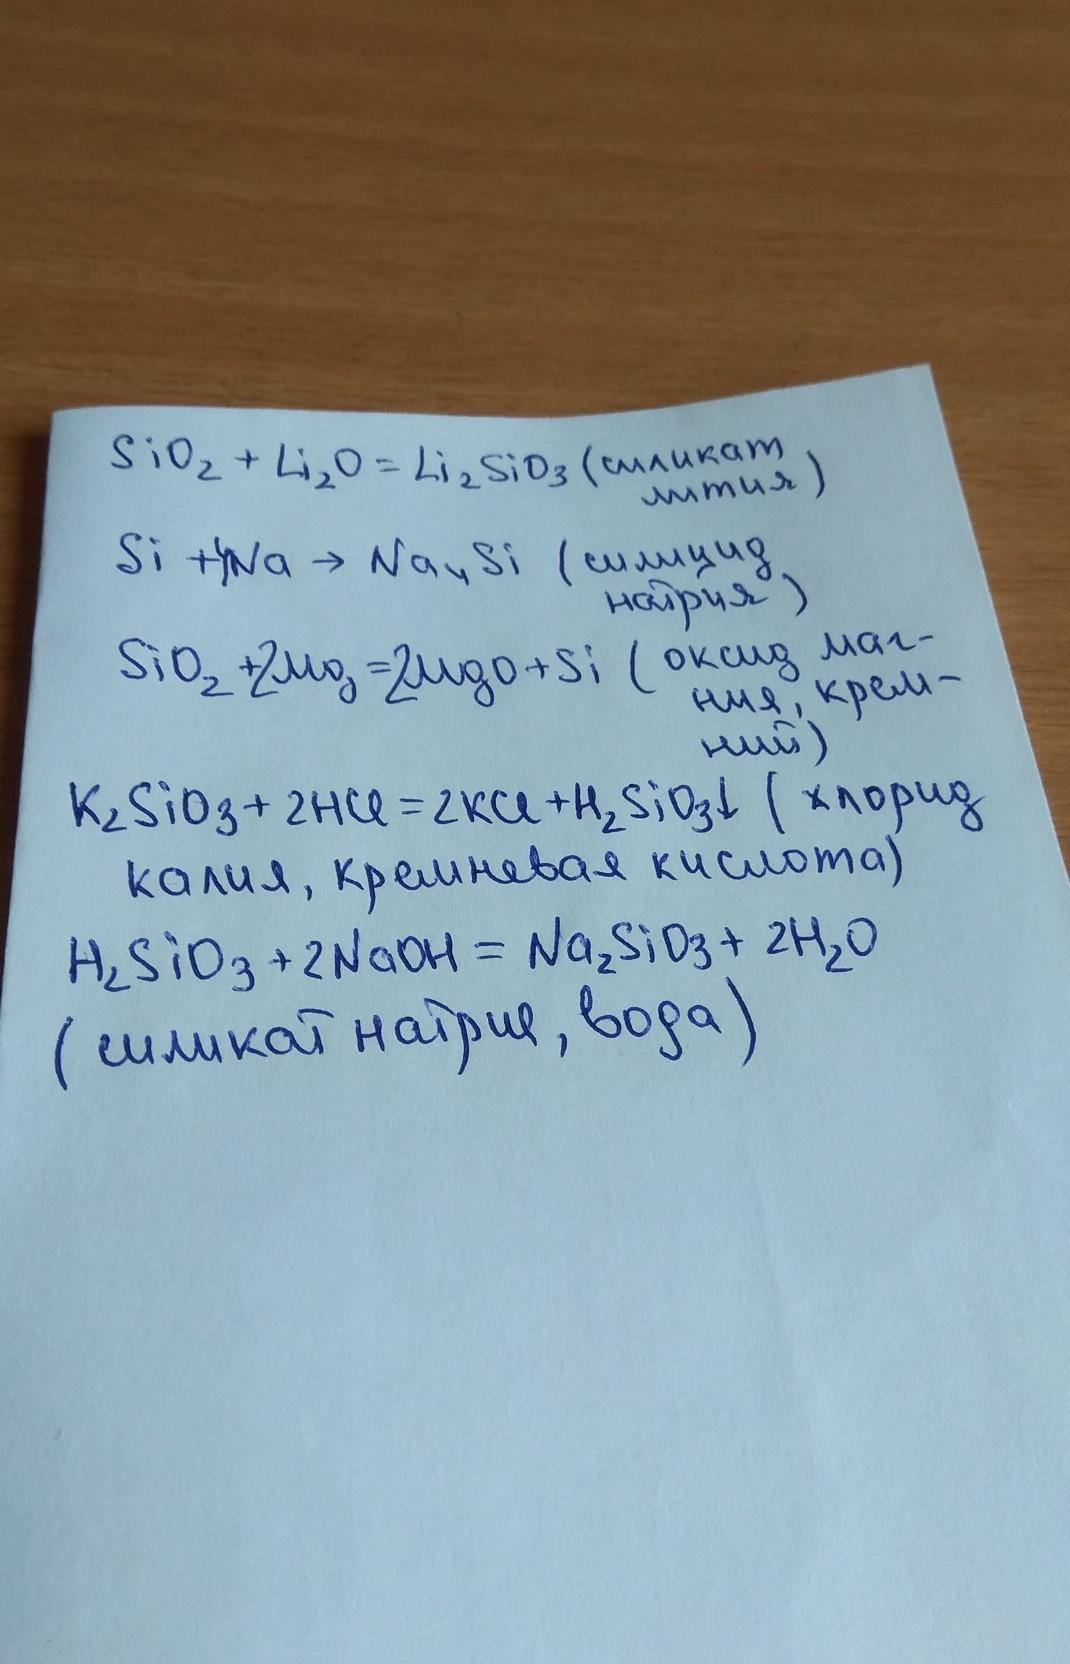 SiO₂ + Li₂O = Li₂SiO₃ (силикат
лития)
Si + 4Na → Na₄Si (силицид
натрия)
SiO₂ + 2Mg = 2MgO + Si (оксид маг-
ния, крем-
ний)
K₂SiO₃ + 2HCl = 2KCl + H₂SiO₃↓ (хлорид
калия, кремневая кислота)
H₂SiO₃ + 2NaOH = Na₂SiO₃ + 2H₂O
(силикат натрия, вода)